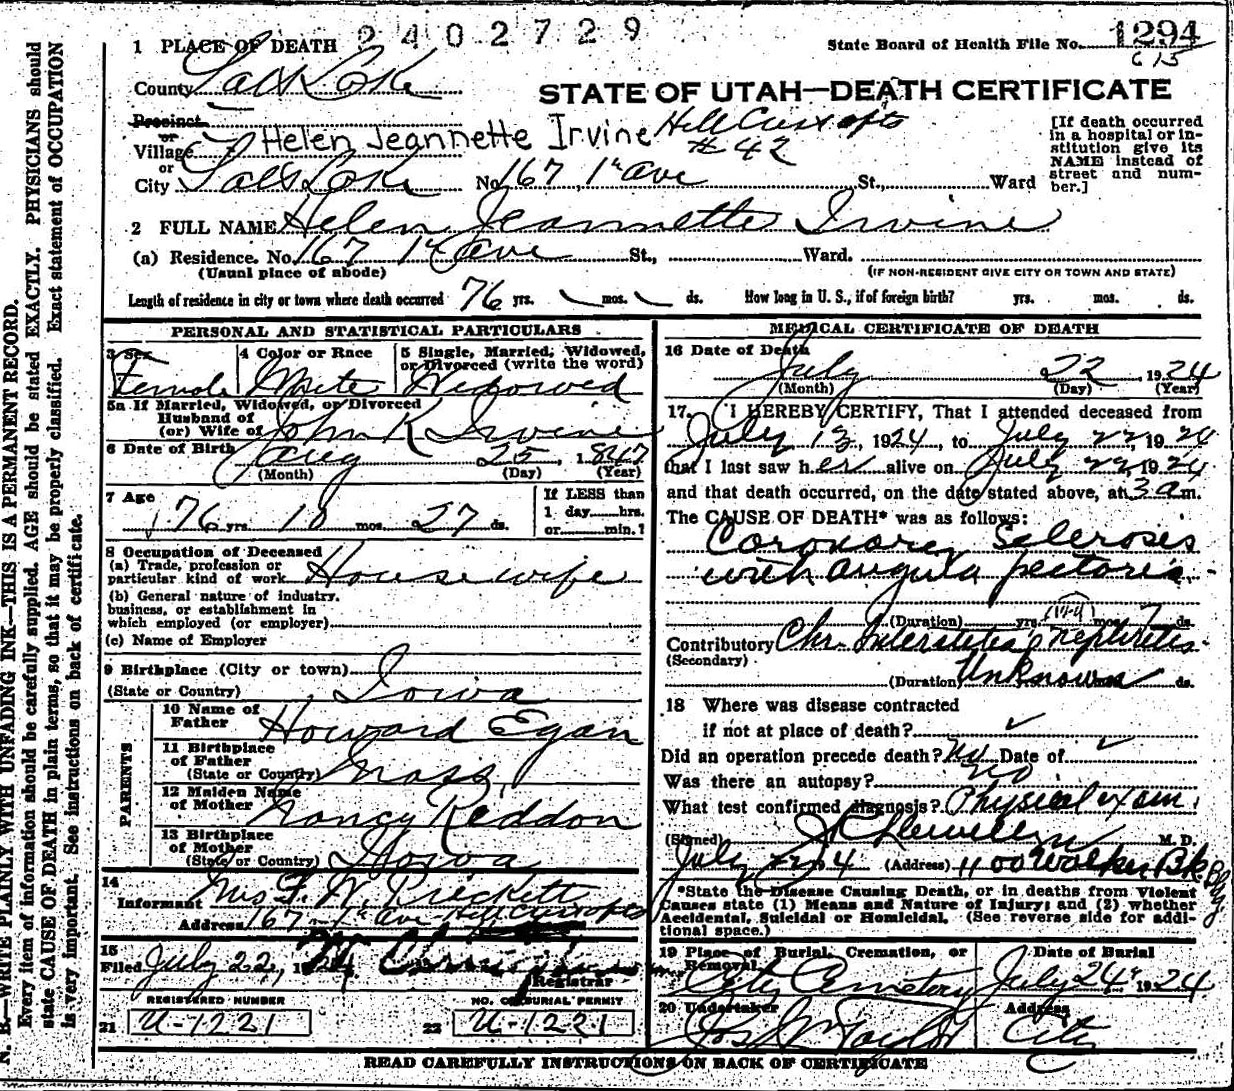 2402729
State Board of Health File No. 1294
615
1 PLACE OF DEATH
County Salt Lake
STATE OF UTAH—DEATH CERTIFICATE
Precinct
or
Village Helen Jeannette Irvine Hillcrest apts
#42
or
City Salt Lake No. 167 1st ave St., Ward
[If death occurred in a hospital or institution give its NAME instead of street and number.]
2 FULL NAME Helen Jeannette Irvine
(a) Residence. No. 167 1st ave St., Ward.
(Usual place of abode)
(IF NON-RESIDENT GIVE CITY OR TOWN AND STATE)
Length of residence in city or town where death occurred 76 yrs. mos. ds. How long in U. S., if of foreign birth? yrs. mos. ds.
PERSONAL AND STATISTICAL PARTICULARS
3 Sex
Female
4 Color or Race
White
5 Single, Married, Widowed, or Divorced (write the word)
Widowed
5a If Married, Widowed, or Divorced
Husband of
(or) Wife of John K Irvine
6 Date of Birth Aug 25, 1847
(Month) (Day) (Year)
7 Age
76 yrs. 10 mos. 27 ds.
If LESS than
1 day hrs.
or min.?
8 Occupation of Deceased
(a) Trade, profession or
particular kind of work Housewife
(b) General nature of industry,
business, or establishment in
which employed (or employer)
(c) Name of Employer
9 Birthplace (City or town)
(State or Country) Iowa
PARENTS
10 Name of
Father Howard Egan
11 Birthplace
of Father
(State or Country) Mass
12 Maiden Name
of Mother Nancy Reddon
13 Birthplace
of Mother
(State or Country) Iowa
14
Informant Mrs F. W. Prickett
Address 167 - 1st ave
15
Filed July 22, 1924
Registrar
REGISTERED NUMBER
21 U-1221
NO. OF BURIAL PERMIT
22 U-1221
MEDICAL CERTIFICATE OF DEATH
16 Date of Death
July 22 1924
(Month) (Day) (Year)
17. I HEREBY CERTIFY, That I attended deceased from
July 13, 1924, to July 22 1924
that I last saw her alive on July 22, 1924
and that death occurred, on the date stated above, at 3 a m.
The CAUSE OF DEATH* was as follows:
Coronary Sclerosis
with angina pectoris
(Duration) yrs. mos. 7 ds.
Contributory Chr. Interstitial nephritis
(Secondary)
(Duration) Unknown yrs. mos. ds.
18 Where was disease contracted
if not at place of death?
Did an operation precede death? No Date of
Was there an autopsy? no
What test confirmed diagnosis? Physical exam.
(Signed) M. D.
July 22 24 (Address) 1100 Walker Bk Bldg.
*State the Disease Causing Death, or in deaths from Violent
Causes state (1) Means and Nature of Injury; and (2) whether
Accidental, Suicidal or Homicidal. (See reverse side for additional space.)
19 Place of Burial, Cremation, or
Removal
City Cemetery
Date of Burial
July 24th 1924
20 Undertaker
Jos Wm Taylor
Address
City
READ CAREFULLY INSTRUCTIONS ON BACK OF CERTIFICATE
N. B.—WRITE PLAINLY WITH UNFADING INK—THIS IS A PERMANENT RECORD.
Every item of information should be carefully supplied. AGE should be stated EXACTLY. PHYSICIANS should
state CAUSE OF DEATH in plain terms, so that it may be properly classified. Exact statement of OCCUPATION
is very important. See instructions on back of certificate.